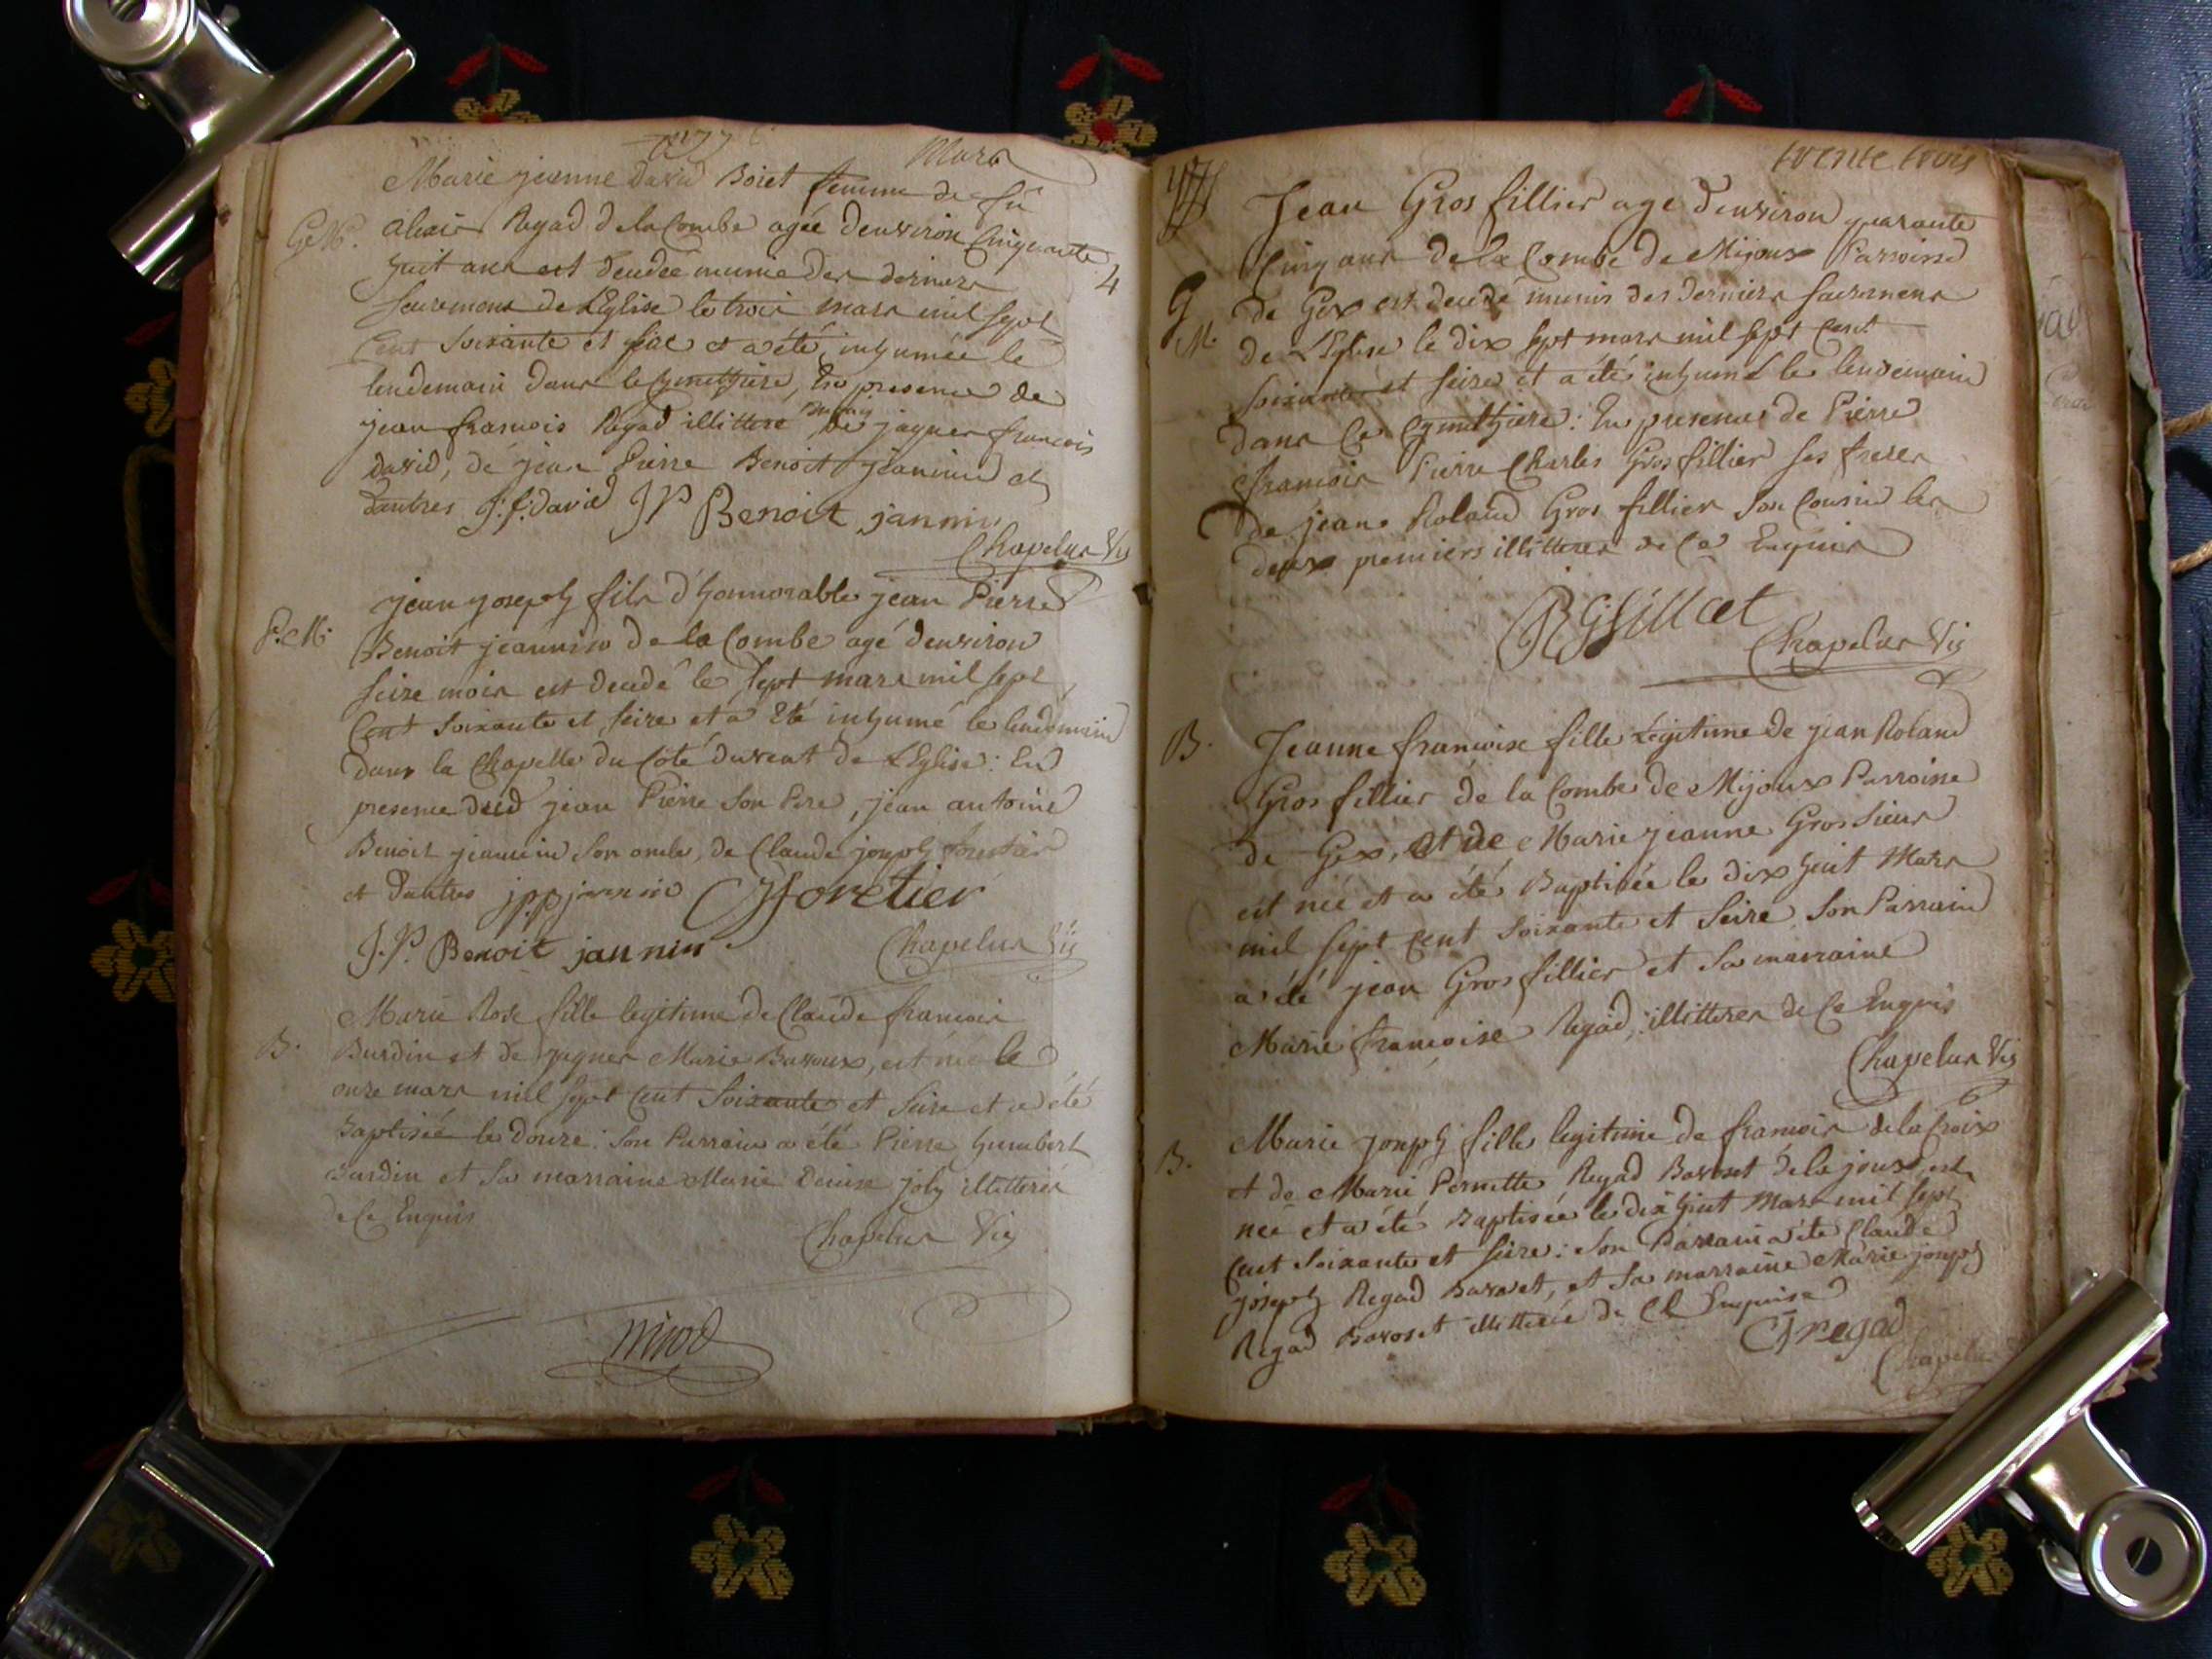 1776
Mars
Marie jeanne david Boiet femme de fû
G. M. alexis Regad de la Combe agée denviron Cinquante
huit ans est decedée munie des derniers
4
sacremens de L'Eglise le trois mars mil sept
Cent soixante et et a été inhumée le
lendemain dans le Cymethiere, En presence de
jean francois Regad illittere de jaques francois
david, de jean Pierre Benoit jeannin et
dautres J: f: david J P Benoit jannin
Chapelus Vic
jean joseph fils d'honnorable jean Pierre
P. M. Benoit jeannin de la Combe agé denviron
seize mois est decedé le sept mars mil sept
Cent soixante et seize et a Eté inhumé le lendemain
dans la Chapelle du Coté du vent de L'Eglise: En
presence dud jean Pierre son Pere, jean antoine
Benoit jeannin son oncle, de Claude joseph foretier
et dautres jpp jannin CJforetier
J. P. Benoit jannin
Chapelus Vic
Marie Rose fille legitime de Claude francois
B. Burdin et de Marie Bavoux, est née le
onze mars mil sept Cent Soixante et seize et a été
Baptisée le douze: son Parrain a été Pierre humbert
Burdin et sa marraine Marie Denise joly illitterés
de Ce Enquis
Chapelus Vic
Nicod
trente trois
Jean Gros fillier age d'environ quarante
Cinq ans de la Combe de Mijoux Parroisse
G M. de Gex est decedé munis des derniers sacremens
de L'Eglise le dix sept mars mil sept Cent
soixante et seize et a été inhumé le lendemain
dans Ce Cymethiere: En presence de Pierre
francois Pierre Charles Gros fillier ses freres
de jean Roland Gros fillier son Cousin les
deux premiers illitteres de Ce Enquis
Chapelus Vic
B. Jeanne francoise fille Légitime de jean Roland
Gros fillier de la Combe de Mijoux Parroisse
de Gex, et de Marie jeanne Grossieur
est née et a été Baptisée le dix huit Mars
mil sept Cent soixante et seize, son Parrain
a été jean Gros fillier et sa marraine
Marie francoise Regad, illitteres de Ce Enquis
Chapelus Vic
B. Marie joseph fille legitime de francois dela Croix
et de Marie Pernette Regad Bavoset de la joux, est
née et a été Baptisée le dix huit Mars mil sept
Cent soixante et seize: son Parrain a été Claude
joseph Regad Bavoset, et sa marraine Marie joseph
Regad Bavoset illitterée de Ce Enquise
CJ regad
Chapelus